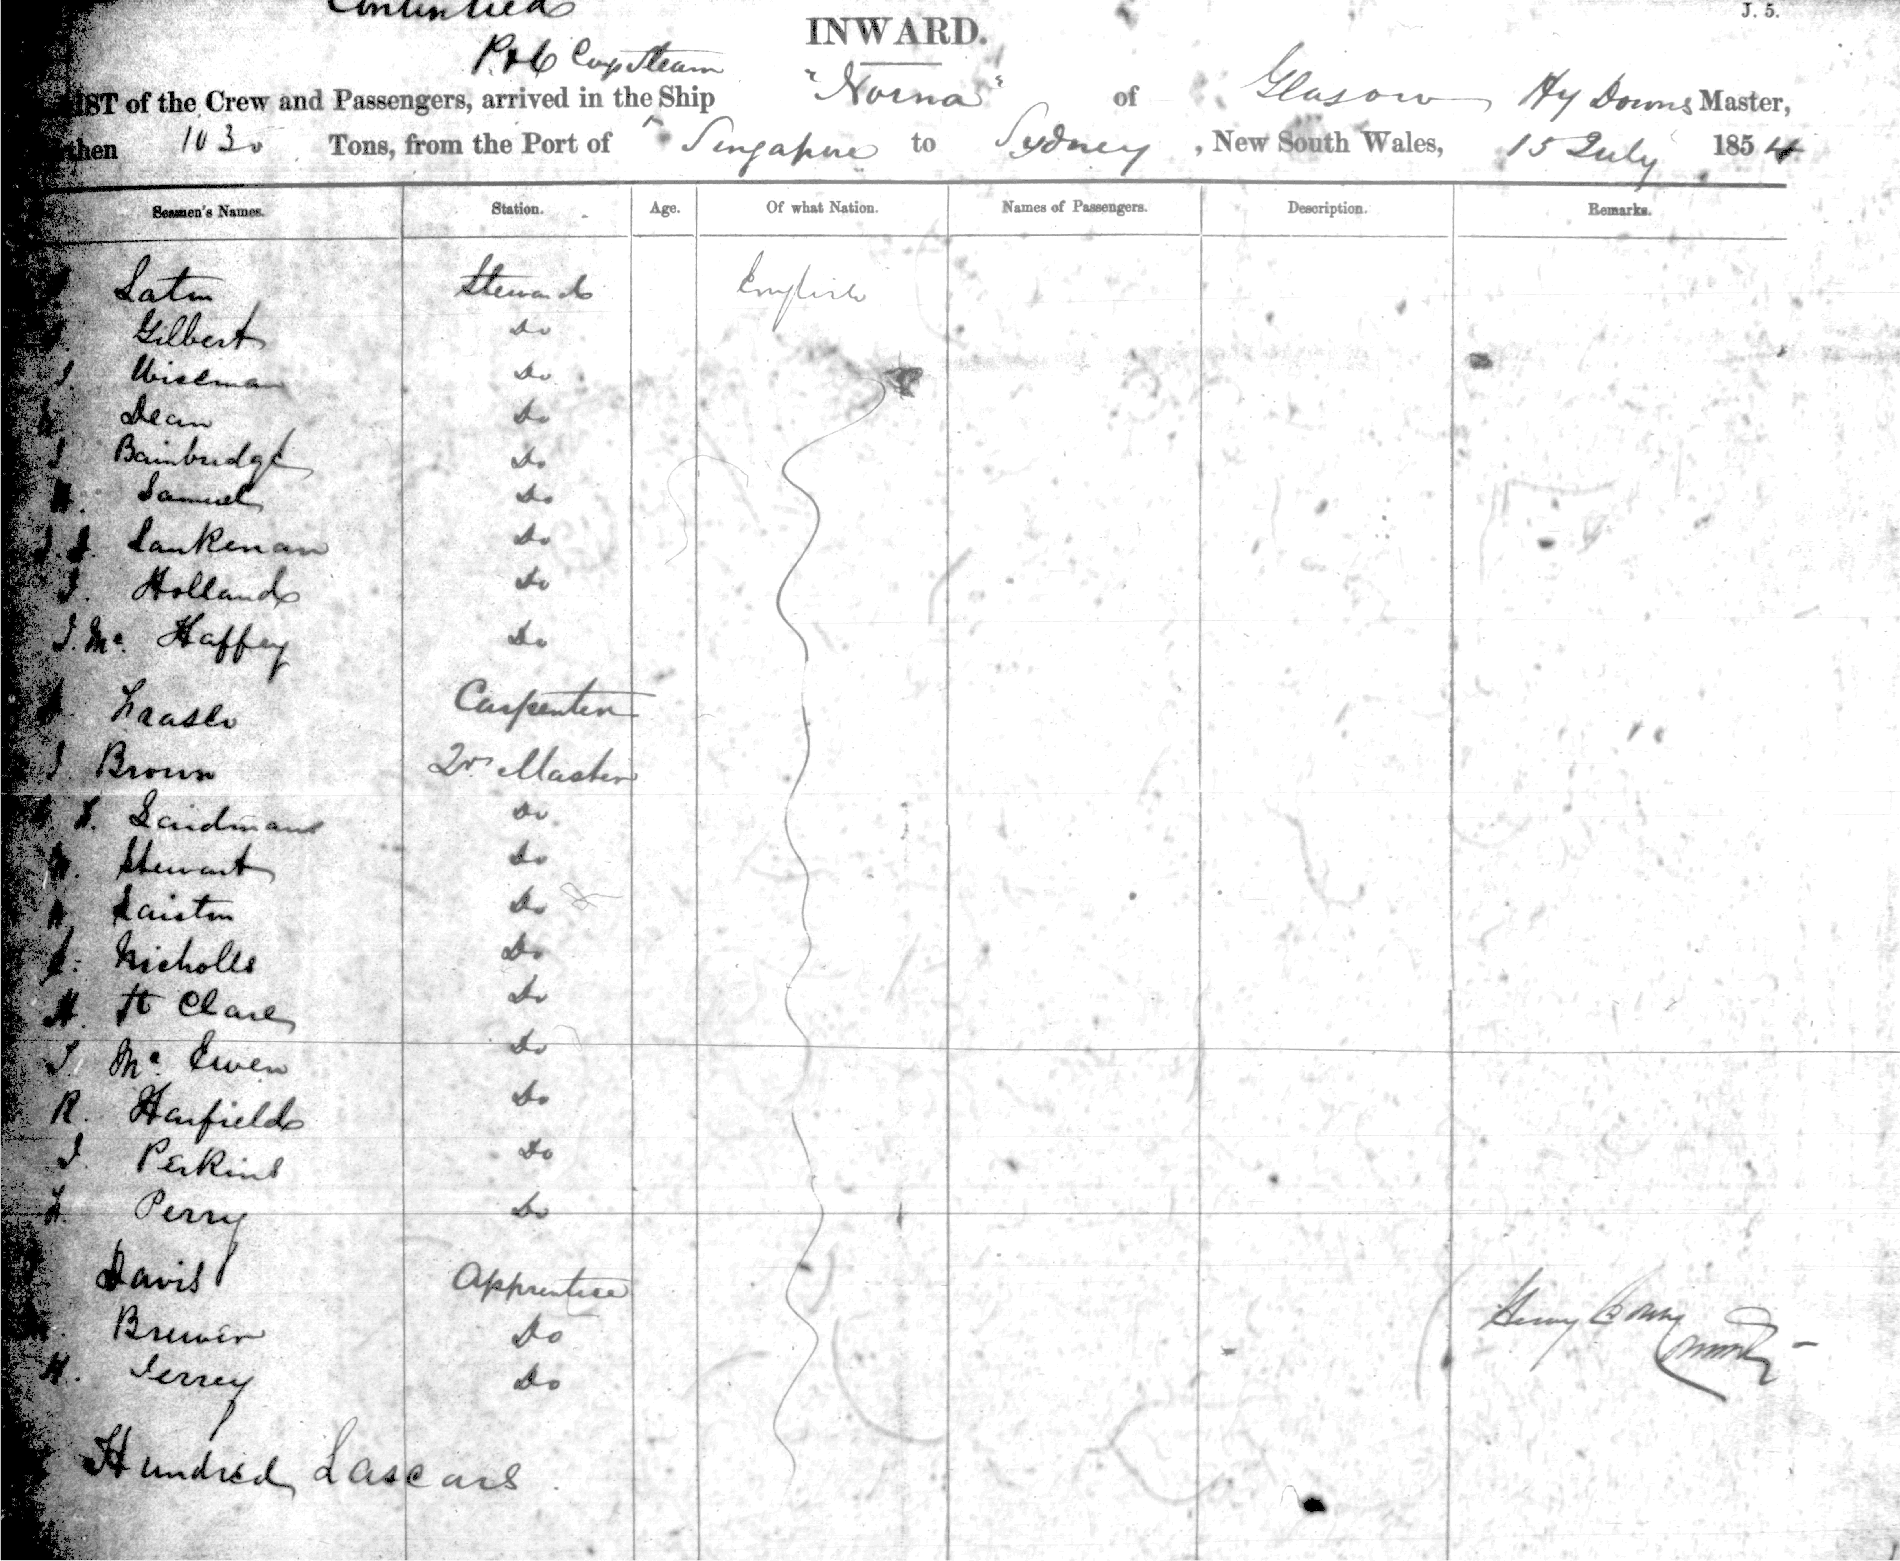 Continued
INWARD.
J. 5.
P & O Coys Steam
LIST of the Crew and Passengers, arrived in the Ship "Norna" of Glasgow Hy Downs Master,
then 1030 Tons, from the Port of Singapore to Sydney, New South Wales, 15 July 1854
Seamen's Names. Station. Age. Of what Nation. Names of Passengers. Description. Remarks.
Stewards English
Gilbert Do
J. Wiseman Do
Dean Do
Bainbridge Do
Samuel Do
Lankenan Do
J. Holland Do
J. Mc Haffey Do
Carpenter
J Brown Qr Master
Do
Stewart Do
Do
Nicholls Do
H. St Clare Do
J. Mc Ewen Do
R. Harfield Do
J. Perkins Do
Perry Do
Davis Apprentice
Brewer Do
H. Terrey Do
Hundred Lascars
Henry Downs